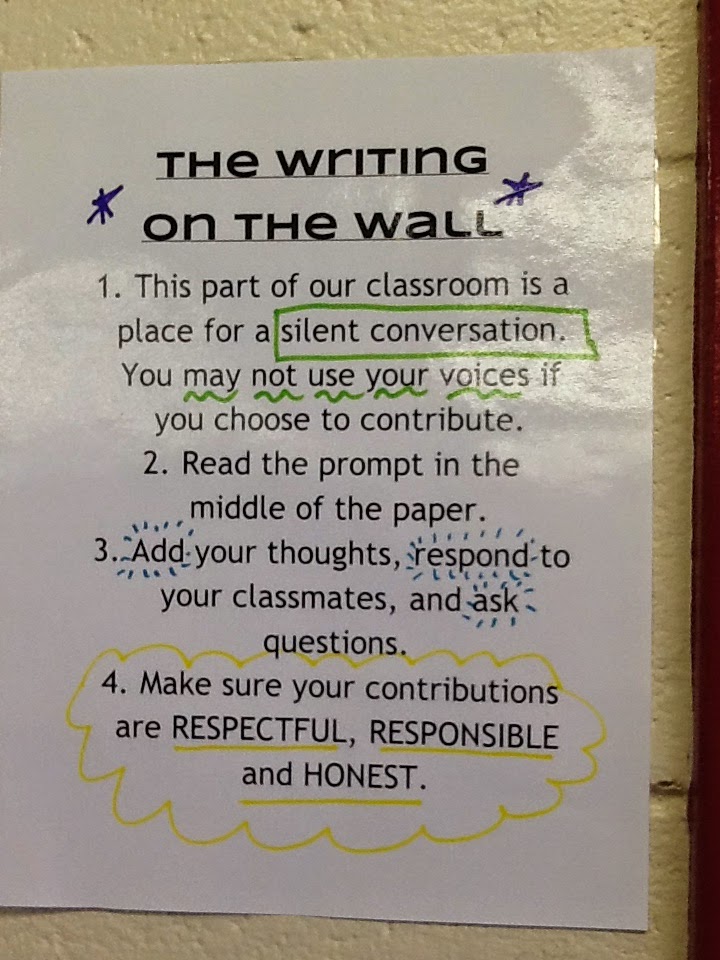 THE WRITING
ON THE WALL
1. This part of our classroom is a
place for a silent conversation.
You may not use your voices if
you choose to contribute.
2. Read the prompt in the
middle of the paper.
3. Add your thoughts, respond to
your classmates, and ask
questions.
4. Make sure your contributions
are RESPECTFUL, RESPONSIBLE
and HONEST.